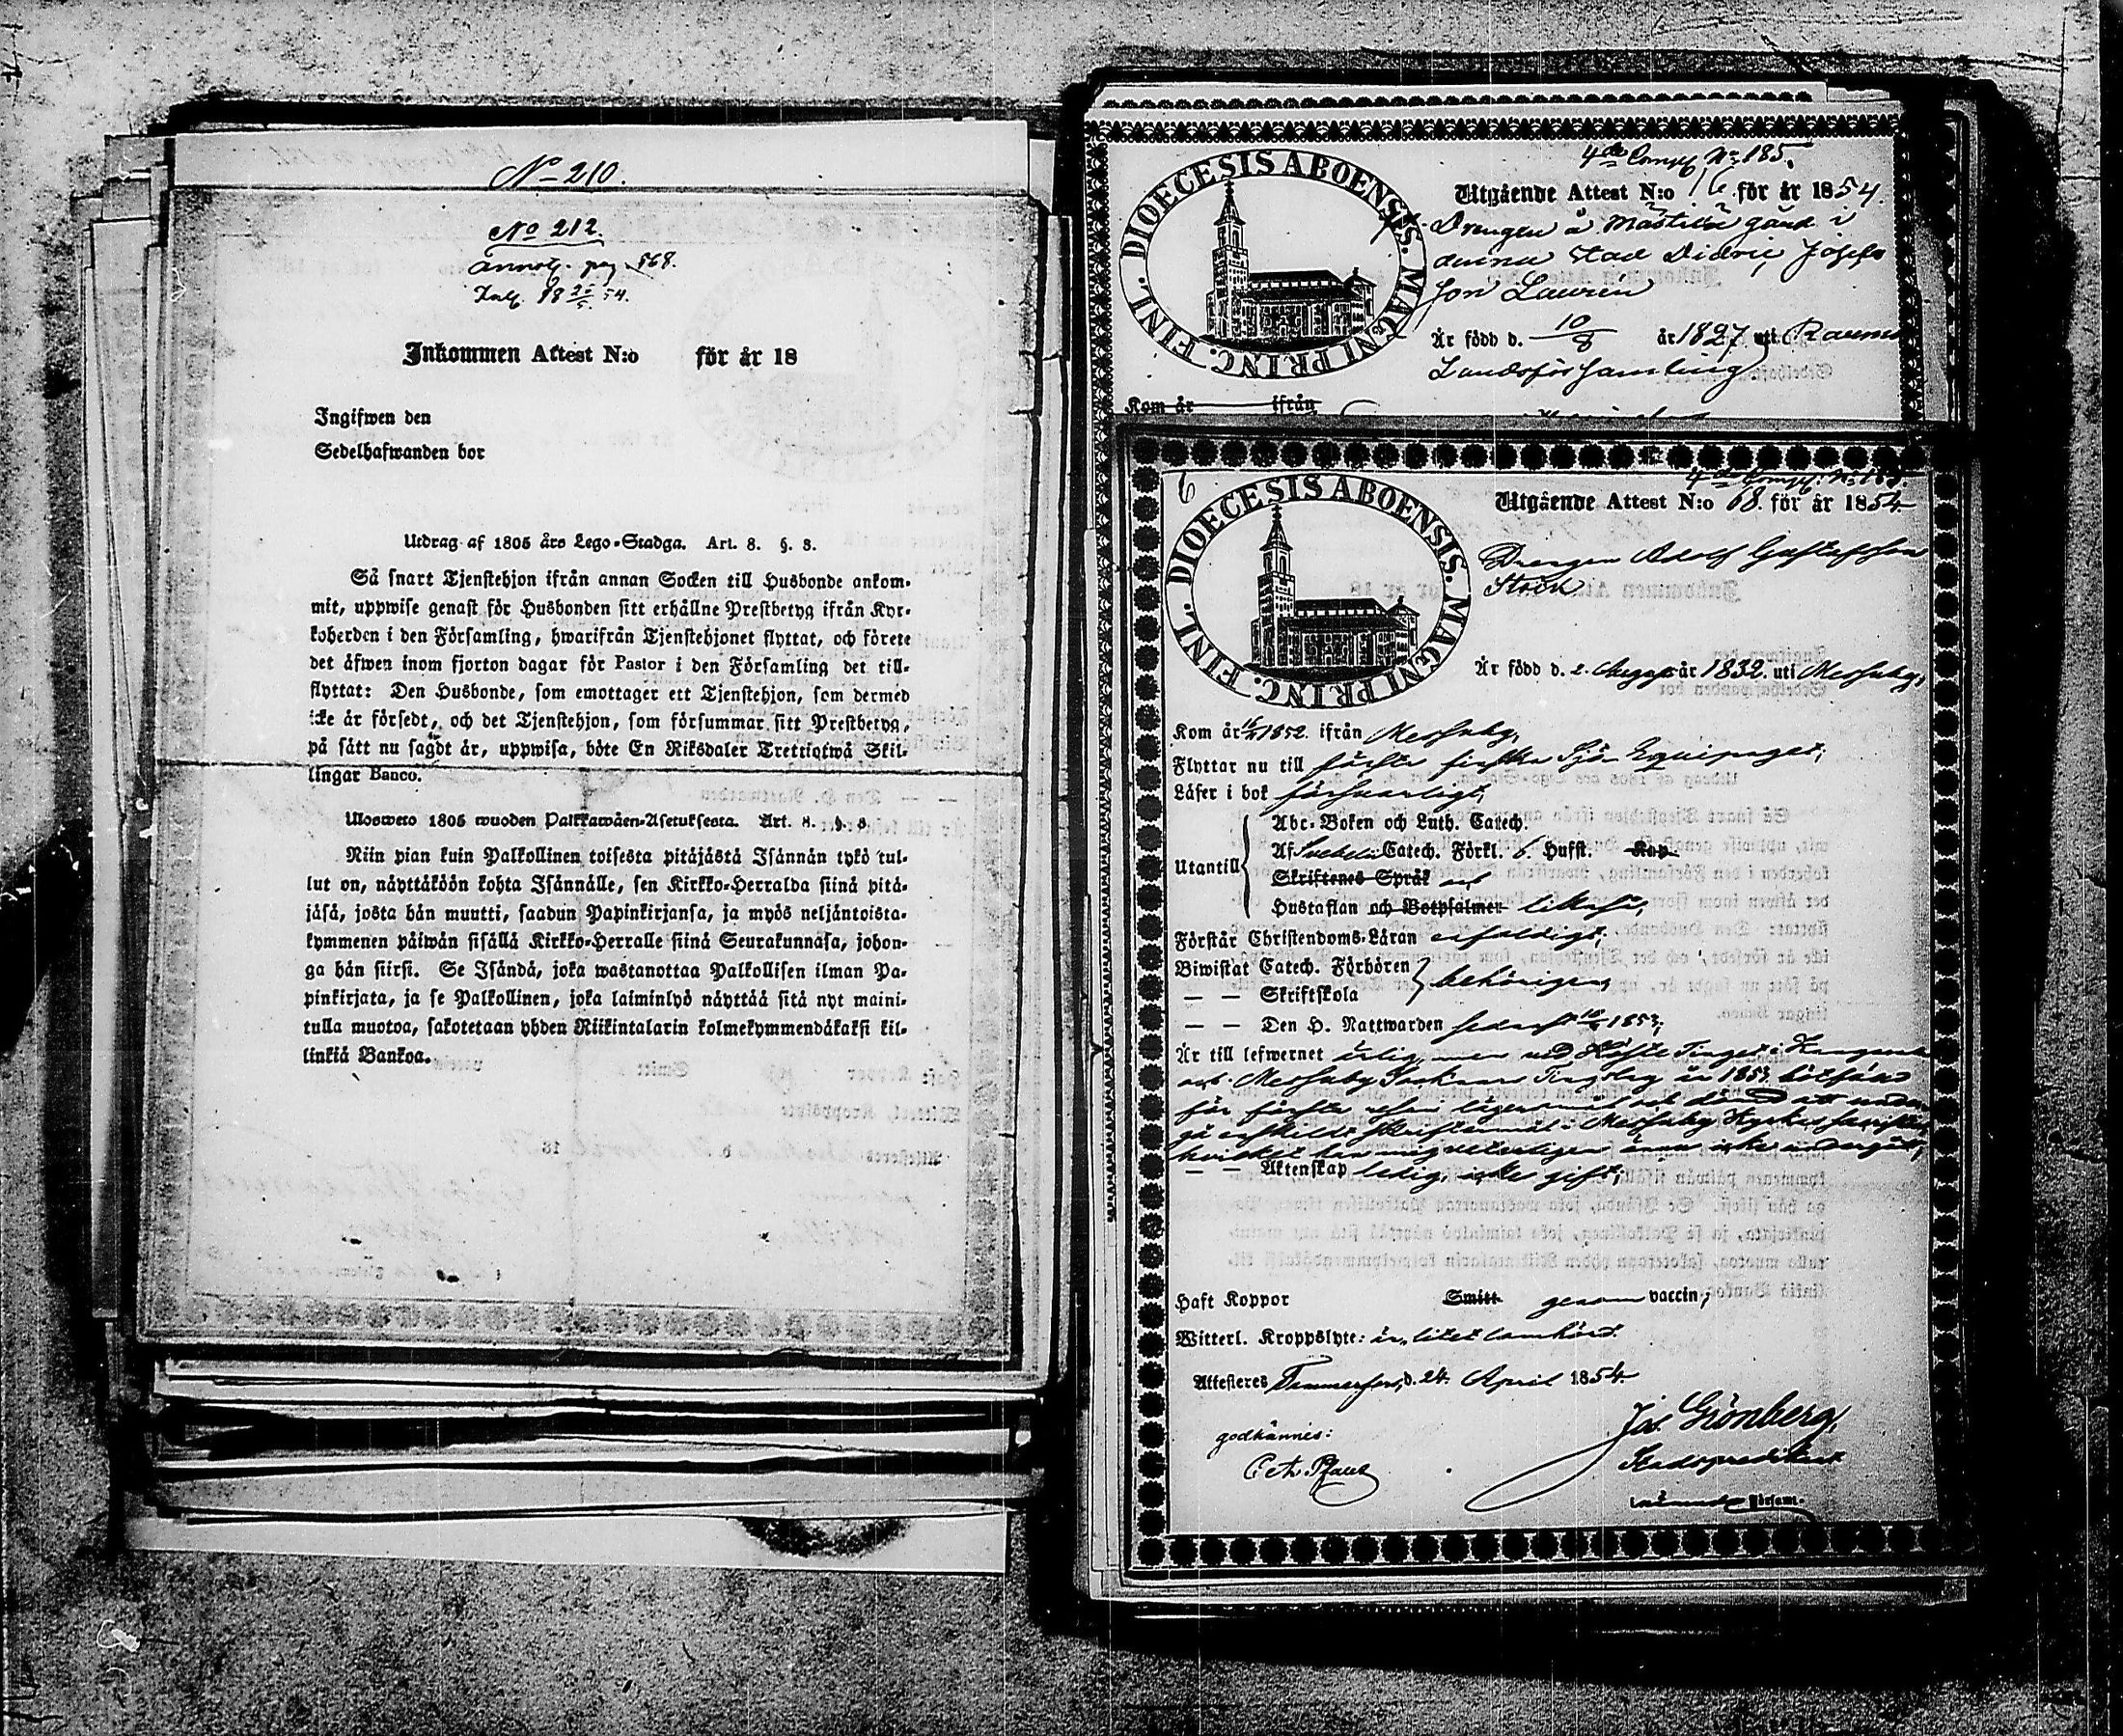 N=o 210.
No 212.
annot. pag 568.
Inl. 18 26/5 54.
Inkommen Attest N:o för år 18
Ingifwen den
Sedelhafwanden bor
Utdrag af 1805 års Lego-Stadga. Art. 8. §. 8.
Så snart Tjenstehjon ifrån annan Socken till Husbonde ankom-
mit, uppwise genast för Husbonden sitt erhållne Prestbetyg ifrån Kyr-
koherden i den Församling, hwarifrån Tjenstehjonet flyttat, och förete
det äfwen inom fjorton dagar för Pastor i den Församling det till-
flyttat: Den Husbonde, som emottager ett Tjenstehjon, som dermed
icke är försedt, och det Tjenstehjon, som försummar sitt Prestbetyg,
på sätt nu sagdt är, uppwisa, böte En Riksdaler Trettiotwå Skil-
lingar Banco.
Ulosweto 1805 wuoden Palkkawäen-Asetuksesta. Art. 8. §. 8.
Niin pian kuin Palkollinen toisesta pitäjästä Isännän tykö tul-
lut on, näyttäköön kohta Isännälle, sen Kirkko-Herralda siinä pitä-
jäsä, josta hän muutti, saadun Papinkirjansa, ja myös neljäntoista-
kymmenen päiwän sisällä Kirkko-Herralle siinä Seurakunnasa, johon-
ga hän siirsi. Se Isändä, joka wastanottaa Palkollisen ilman Pa-
pinkirjata, ja se Palkollinen, joka laiminlyö näyttää sitä nyt maini-
tulla muotoa, sakotetaan yhden Riikintalarin kolmekymmendäkaksi kil-
linkiä Bankoa.
4de Comp No 185.
DIOECESIS ABOENSIS. MAGNI PRINC. FINL.
Utgående Attest N:o 16 för år 1854.
Drengen å gård i
denna stad Didric Josefs
son Laurén
Är född d. 10/8 år 1827 uti Raumo
Landsförsamling
Kom år ifrån
6
4de Comp. No 185.
DIOECESIS ABOENSIS. MAGNI PRINC. FINL.
Utgående Attest N:o 68. för år 1854.
Drengen Adolf Gustafsson
Stock
Är född d. 2. Augusti år 1832. uti Messuby,
Kom år 1852. ifrån Messuby,
Flyttar nu till förste finska Sjö-Equipaget;
Läser i bok försvarligt,
Utantill
Abc-Boken och Luth. Catech.
Af Svebelii Catech. Förkl. 6. Hufst. Kap
Skriftenes Språk och
Hustaflan och Botpsalmer
Förstår Christendoms-Läran enfaldigt;
Biwistat Catech. Förhören
— — Skriftskola
behörigen,
— — Den H. Nattwarden sednast 1853;
Är till lefwernet ärlig, men vid Höste Tinget i Kangasala
och Messuby Socknars Tingslag år 1853 bötfäld
för första resan lägersmål och dömd att under
gå enskildt skriftermål i Messuby Kyrkas sacristia,
hvilket han ännu icke undergått,
— — Äktenskap ledig, icke gift;
Haft Koppor Smitt genom vaccin;
Witterl. Kroppslyte: är litet lomhörd.
Attesteres Tammerfors, d. 24. April 1854.
godkännes:
Jak. Grönberg,
Stadspredikant
Församl.